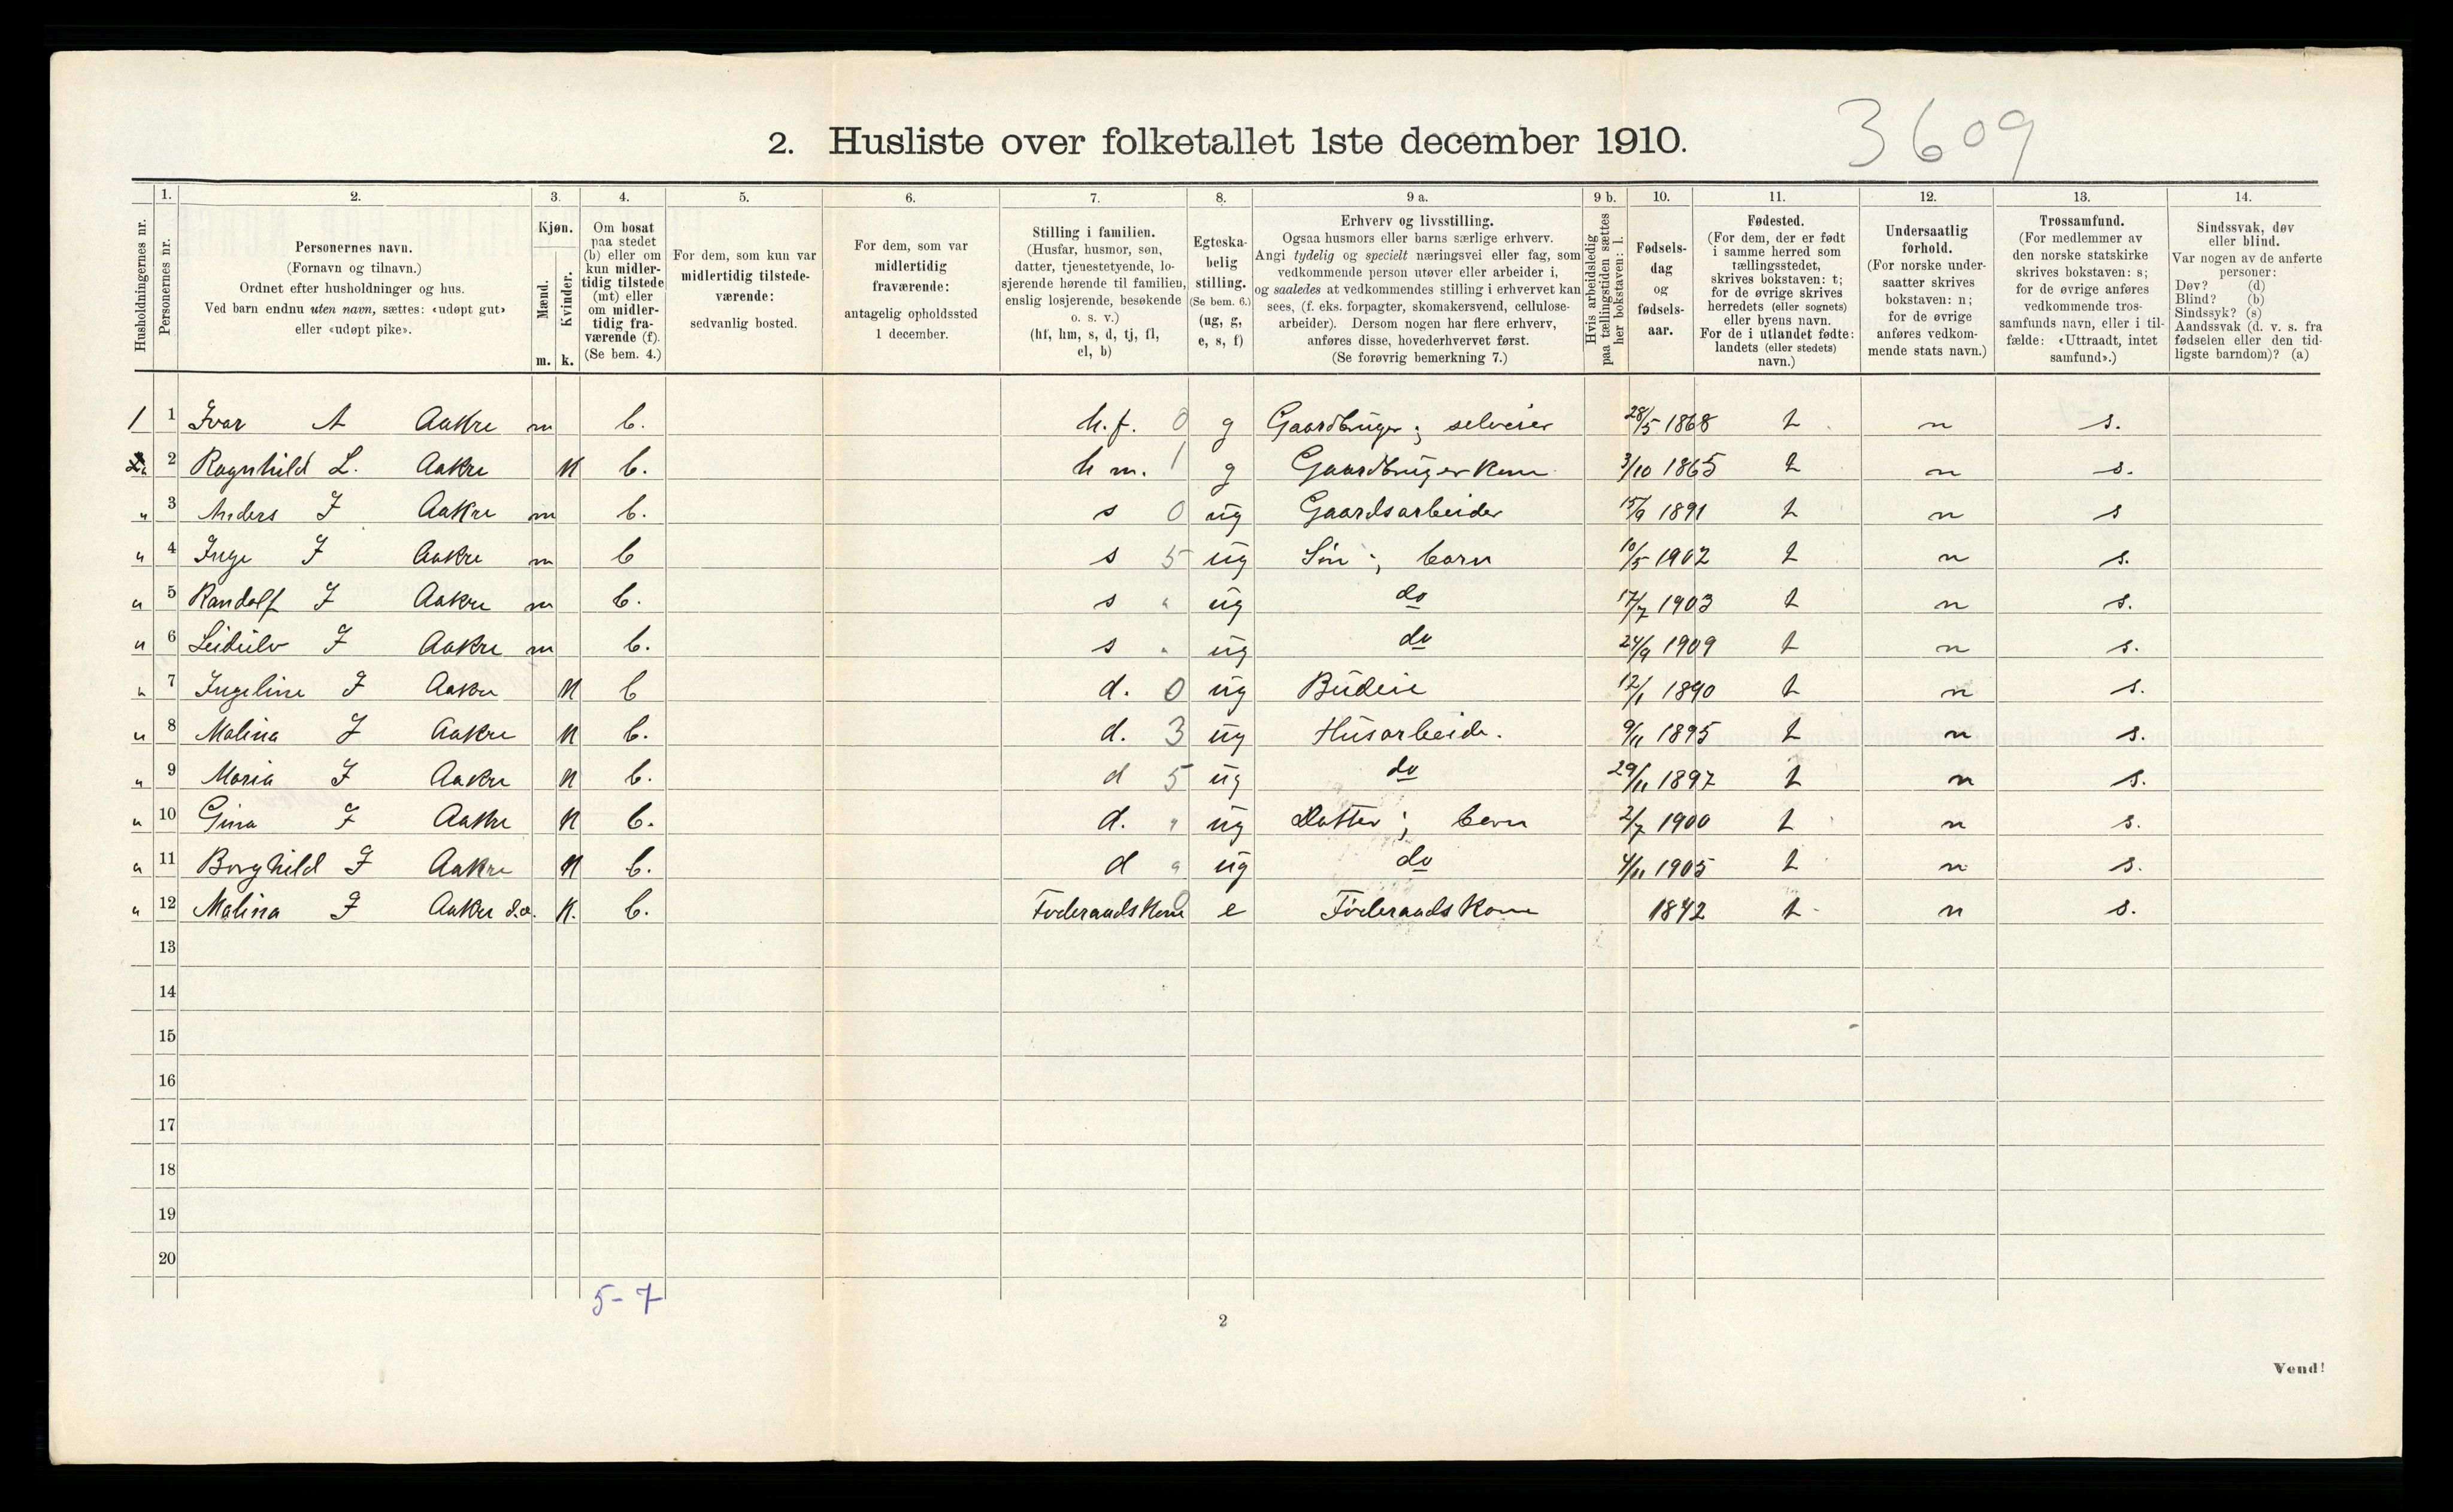 3609
2. Husliste over folketallet 1ste december 1910.
Husholdningernes nr.
1. Personernes nr.
2. Personernes navn.
(Fornavn og tilnavn.)
Ordnet efter husholdninger og hus.
Ved barn endnu uten navn, sættes: «udøpt gut»
eller «udøpt pike».
3. Kjøn.
Mænd. Kvinder.
m. k.
4. Om bosat
paa stedet
(b) eller om
kun midler-
tidig tilstede
(mt) eller
om midler-
tidig fra-
værende (f).
(Se bem. 4.)
5. For dem, som kun var
midlertidig tilstede-
værende:
sedvanlig bosted.
6. For dem, som var
midlertidig
fraværende:
antagelig opholdssted
1 december.
7. Stilling i familien.
(Husfar, husmor, søn,
datter, tjenestetyende, lo-
sjerende hørende til familien,
enslig losjerende, besøkende
o. s. v.)
(hf, hm, s, d, tj, fl,
el, b)
8. Egteska-
belig
stilling.
(Se bem. 6.)
(ug, g,
e, s, f)
9 a. Erhverv og livsstilling.
Ogsaa husmors eller barns særlige erhverv.
Angi tydelig og specielt næringsvei eller fag, som
vedkommende person utøver eller arbeider i,
og saaledes at vedkommendes stilling i erhvervet kan
sees, (f. eks. forpagter, skomakersvend, cellulose-
arbeider). Dersom nogen har flere erhverv,
anføres disse, hovederhvervet først.
(Se forøvrig bemerkning 7.)
9 b. Hvis arbeidsledig
paa tællingstiden sættes
her bokstaven: l.
10. Fødsels-
dag
og
fødsels-
aar.
11. Fødested.
(For dem, der er født
i samme herred som
tællingsstedet,
skrives bokstaven: t;
for de øvrige skrives
herredets (eller sognets)
eller byens navn.
For de i utlandet fødte:
landets (eller stedets)
navn.)
12. Undersaatlig
forhold.
(For norske under-
saatter skrives
bokstaven: n;
for de øvrige
anføres vedkom-
mende stats navn.)
13. Trossamfund.
(For medlemmer av
den norske statskirke
skrives bokstaven: s;
for de øvrige anføres
vedkommende tros-
samfunds navn, eller i til-
fælde: «Uttraadt, intet
samfund».)
14. Sindssvak, døv
eller blind.
Var nogen av de anførte
personer:
Døv? (d)
Blind? (b)
Sindssyk? (s)
Aandssvak (d. v. s. fra
fødselen eller den tid-
ligste barndom)? (a)
1 1 Ivar A Aakre m b. h.f. 0 g Gaardbruger; selveier 28/5 1868 t n s.
2 Ragnhild L. Aakre K b. h m. 1 g Gaardbrugerkone 3/10 1865 t n s.
" 3 Anders I Aakre m b. s 0 ug Gaardsarbeider 15/9 1891 t n s
" 4 Inge I Aakre m b s 5 ug Søn; barn 10/5 1902 t n s.
" 5 Randolf I Aakre m b. s " ug do 17/7 1903 t n s.
" 6 Leidulv I Aakre m b. s " ug do 24/9 1909 t n s.
" 7 Ingeline I Aakre K b d. 0 ug Budeie 12/1 1890 t n s.
" 8 Malina I Aakre K b. d. 3 ug Husarbeide. 9/11 1895 t n s.
" 9 Maria I Aakre K b. d 5 ug do 29/11 1897 t n s.
" 10 Gina I Aakre K b. d. " ug Datter; barn 2/7 1900 t n s.
" 11 Borghild I Aakre K b. d " ug do 4/11 1905 t n s.
" 12 Malina I Aakre K. b. Føderaadskone 0 e Føderaadskone 1842 t n s.
13
14
15
16
17
18
19
20
5-7
2
Vend!